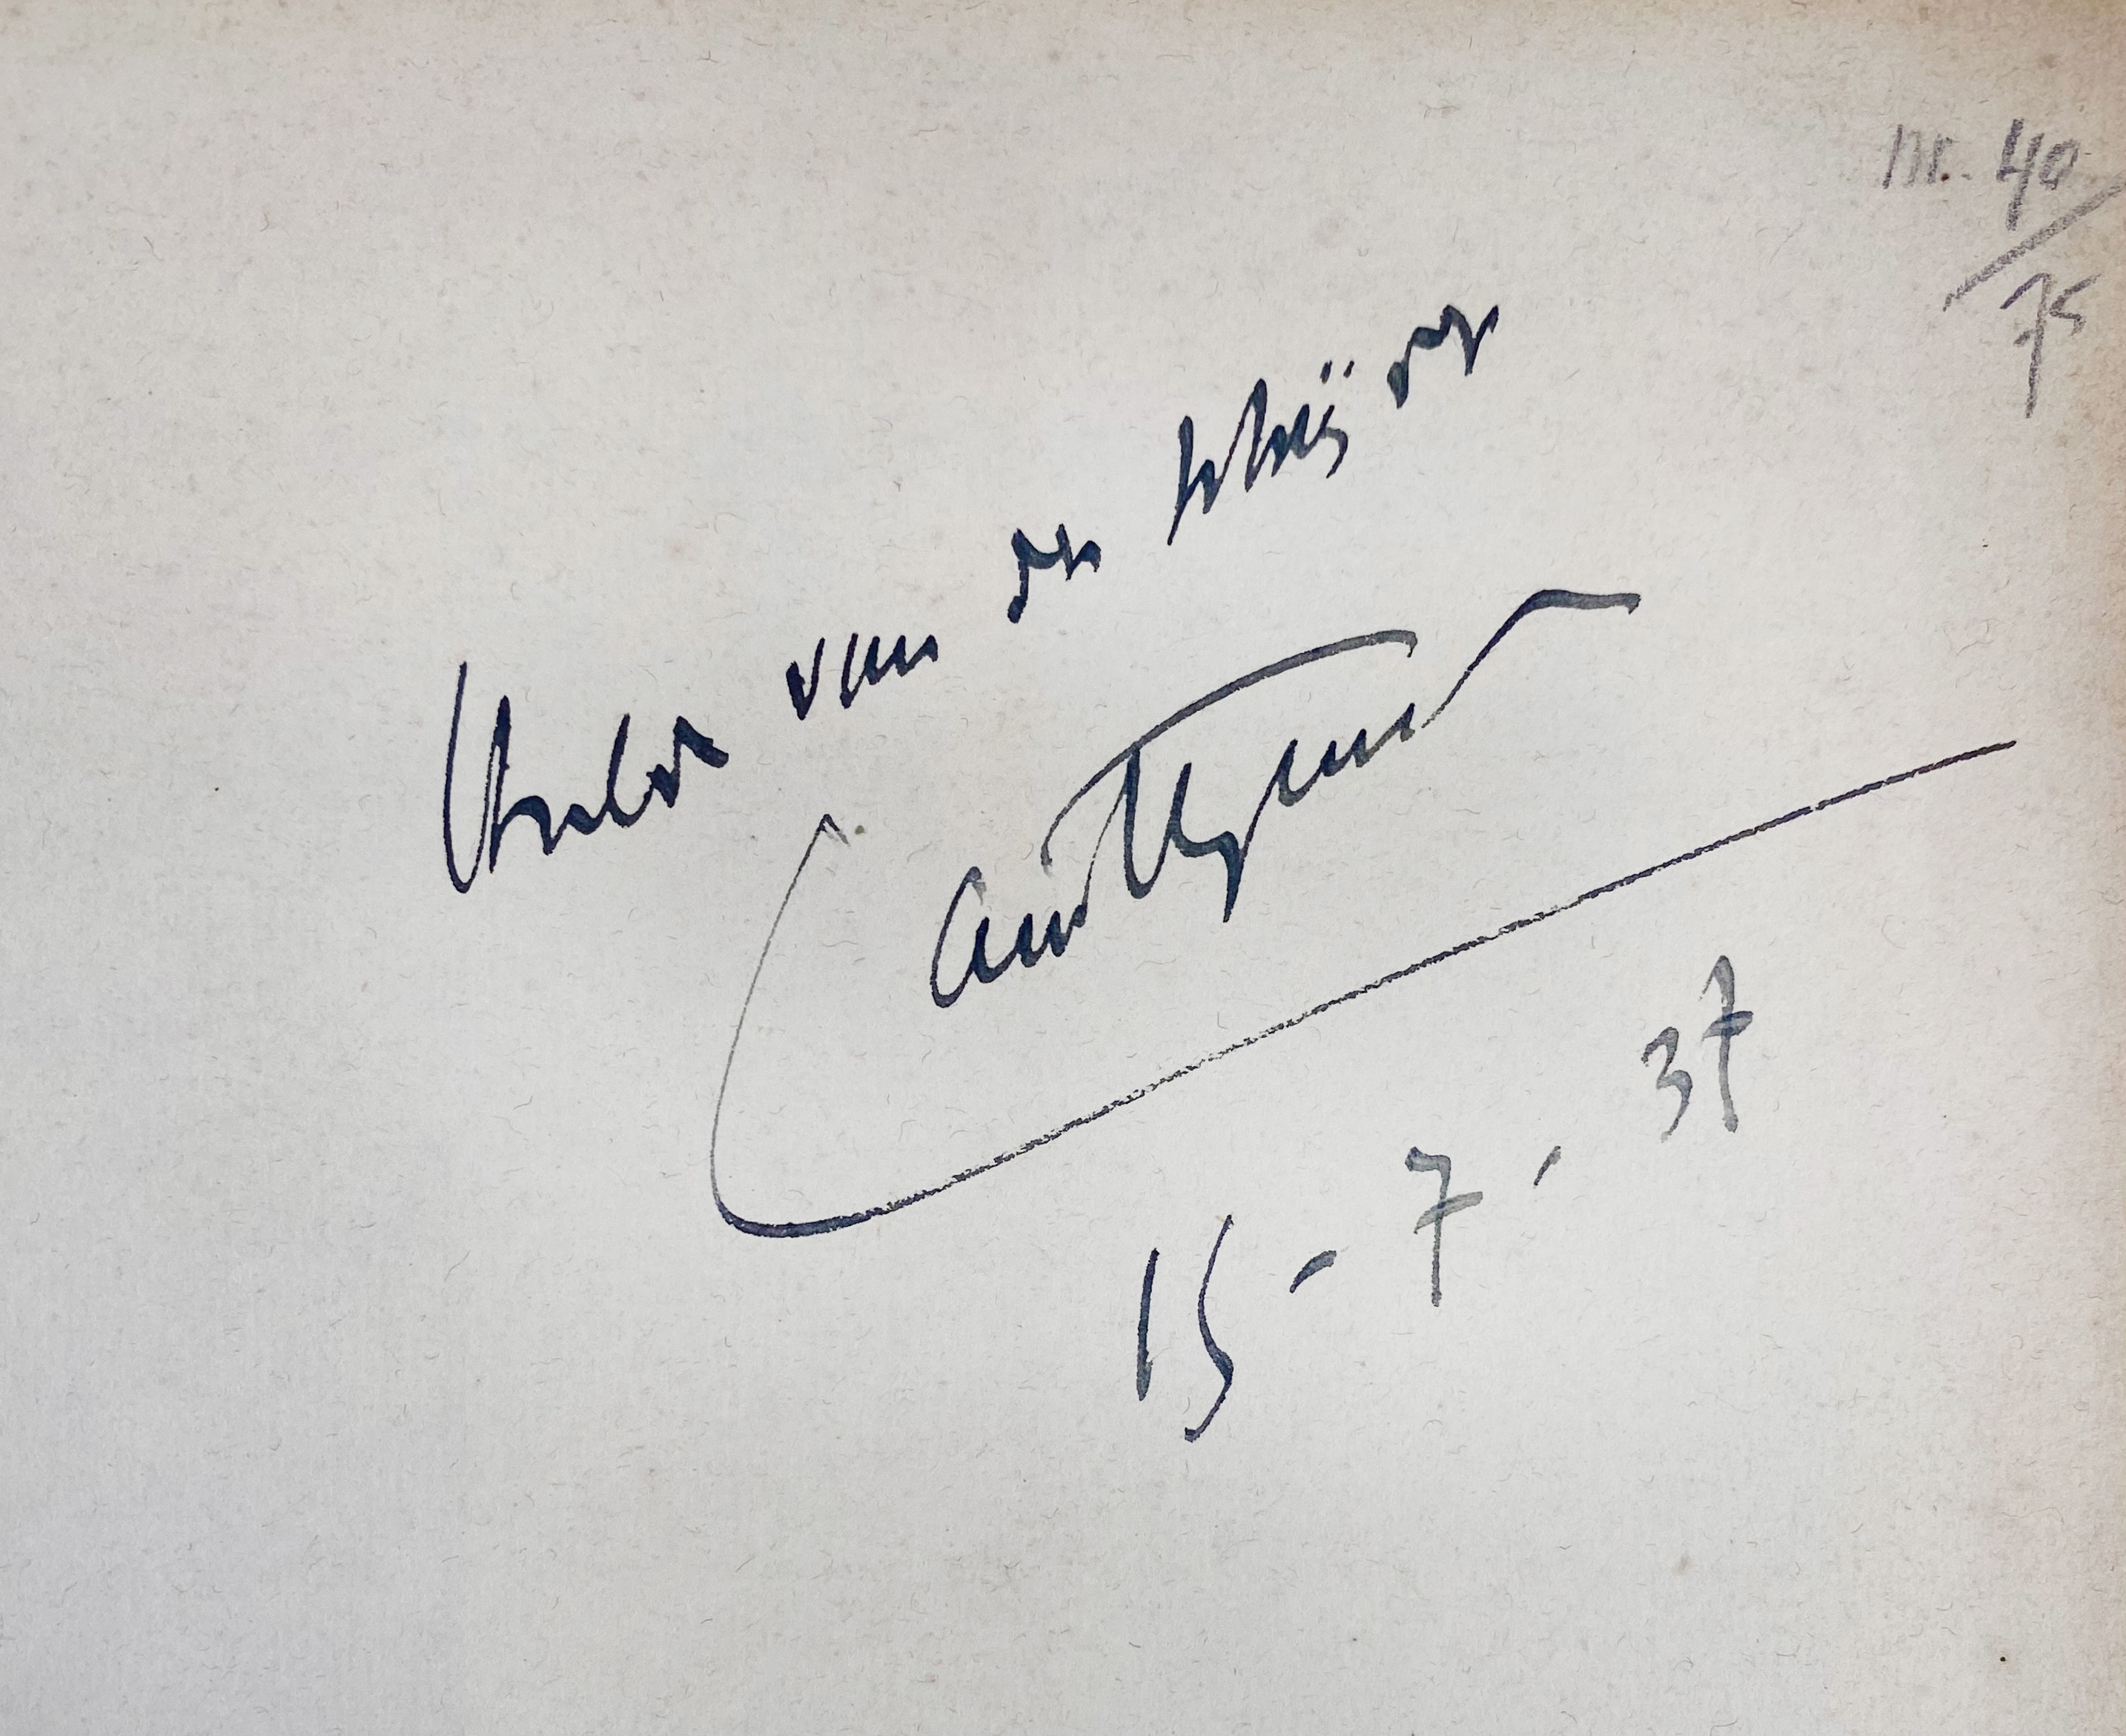 nr. 40
/
75
Hulde van den schrijver
15 - 7 - 37